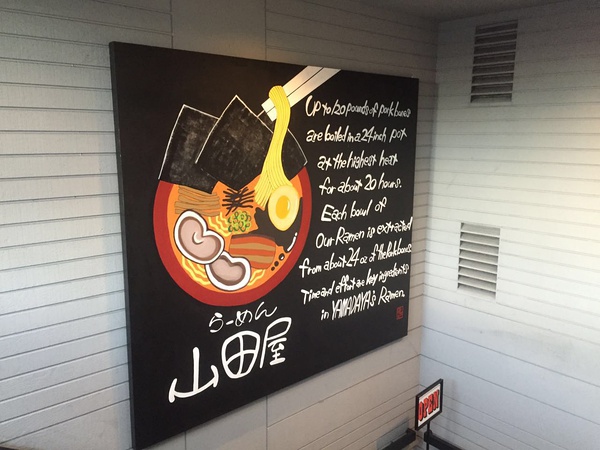 Up to 120 pounds of pork bones
are boiled in a 24 inch pot
at the highest heat
for about 20 hours.
Each bowl of
Our Ramen is extracted
from about 24 oz of the Pork bones.
Time and effort are key ingredients
in YAMADAYA's Ramen.
らーめん
山田屋
OPEN